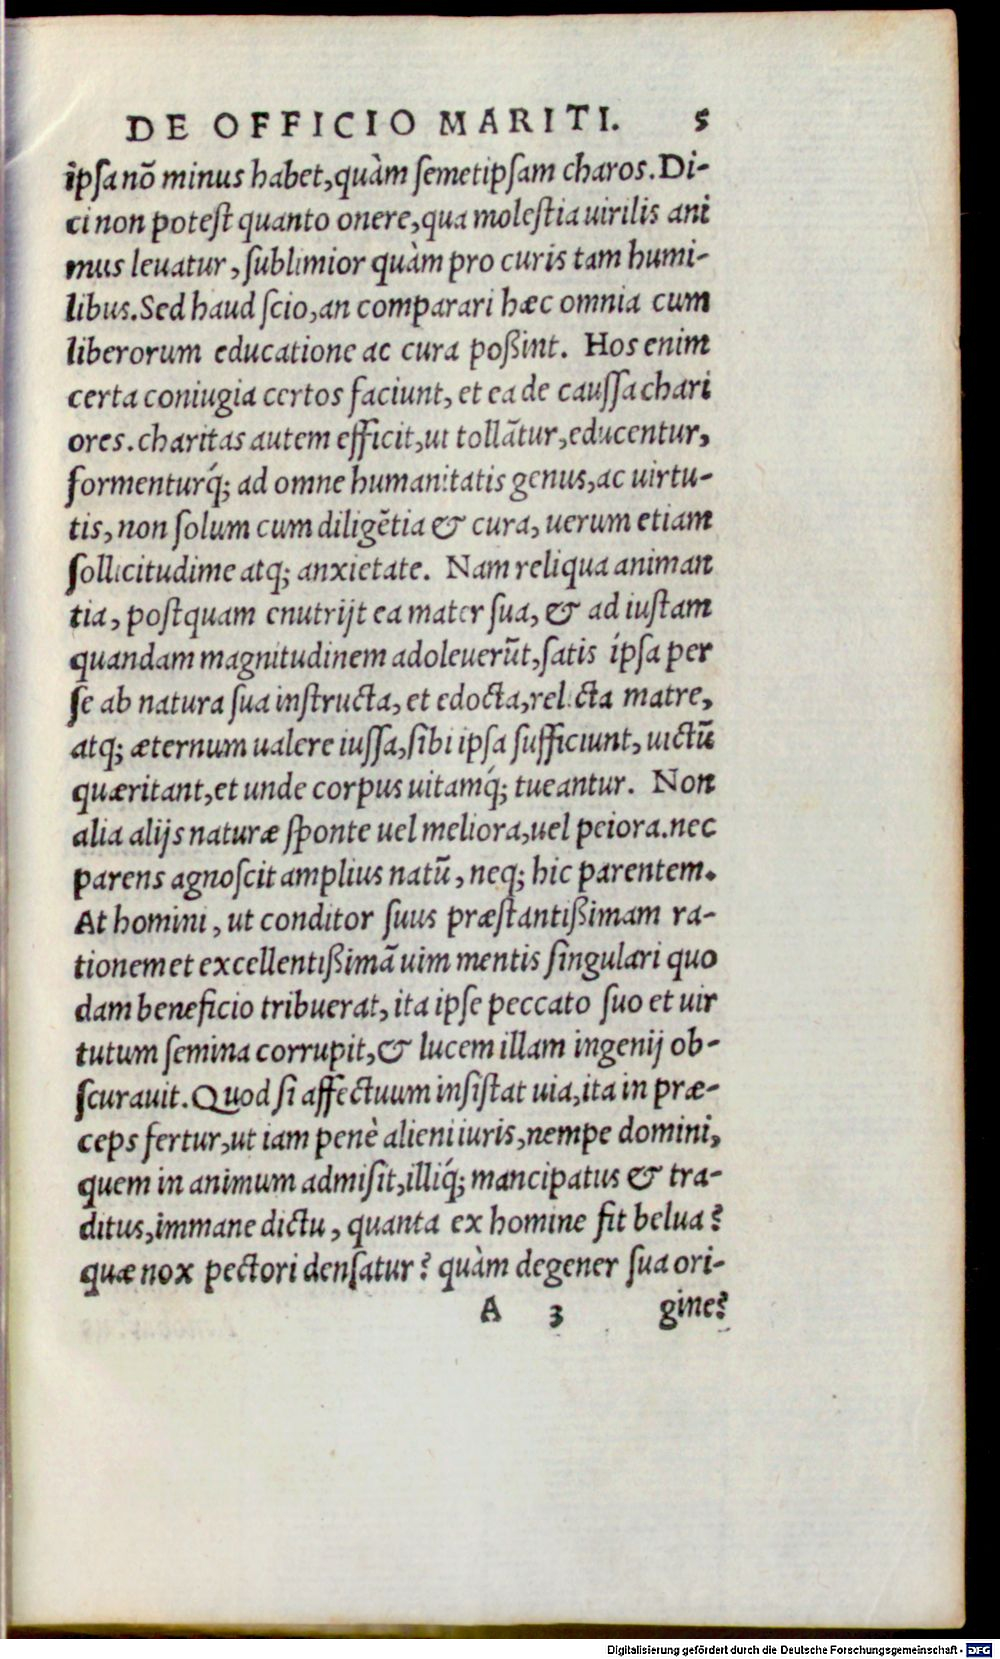 DE OFFICIO MARITI. 5
ipſa nõ minus habet, quàm ſemetipſam charos. Di-
ci non poteſt quanto onere, qua moleſtia uirilis ani
mus leuatur, ſublimior quàm pro curis tam humi-
libus. Sed haud ſcio, an comparari hæc omnia cum
liberorum educatione ac cura poßint. Hos enim
certa coniugia certos faciunt, et ea de cauſſa chari
ores. charitas autem efficit, ut tollãtur, educentur,
formenturq́; ad omne humanitatis genus, ac uirtu-
tis, non ſolum cum diligẽtia & cura, uerum etiam
ſollicitudime atq; anxietate. Nam reliqua animan
tia, poſtquam enutrijt ea mater ſua, & ad iuſtam
quandam magnitudinem adoleuerũt, ſatis ipſa per
ſe ab natura ſua inſtructa, et edocta, relicta matre,
atq; æternum ualere iuſſa, ſibi ipſa ſufficiunt, uictũ
quæritant, et unde corpus uitamq́; tueantur. Non
alia alijs naturæ ſponte uel meliora, uel peiora. nec
parens agnoſcit amplius natũ, neq; hic parentem.
At homini, ut conditor ſuus præſtantißimam ra-
tionem et excellentißimã uim mentis ſingulari quo
dam beneficio tribuerat, ita ipſe peccato ſuo et uir
tutum ſemina corrupit, & lucem illam ingenij ob-
ſcurauit. Quod ſi affectuum inſiſtat uia, ita in præ-
ceps fertur, ut iam penè alieni iuris, nempe domini,
quem in animum admiſit, illiq́; mancipatus & tra-
ditus, immane dictu, quanta ex homine fit belua?
quæ nox pectori denſatur? quàm degener ſua ori-
A 3 gine?
Digitalisierung gefördert durch die Deutsche Forschungsgemeinschaft - DFG